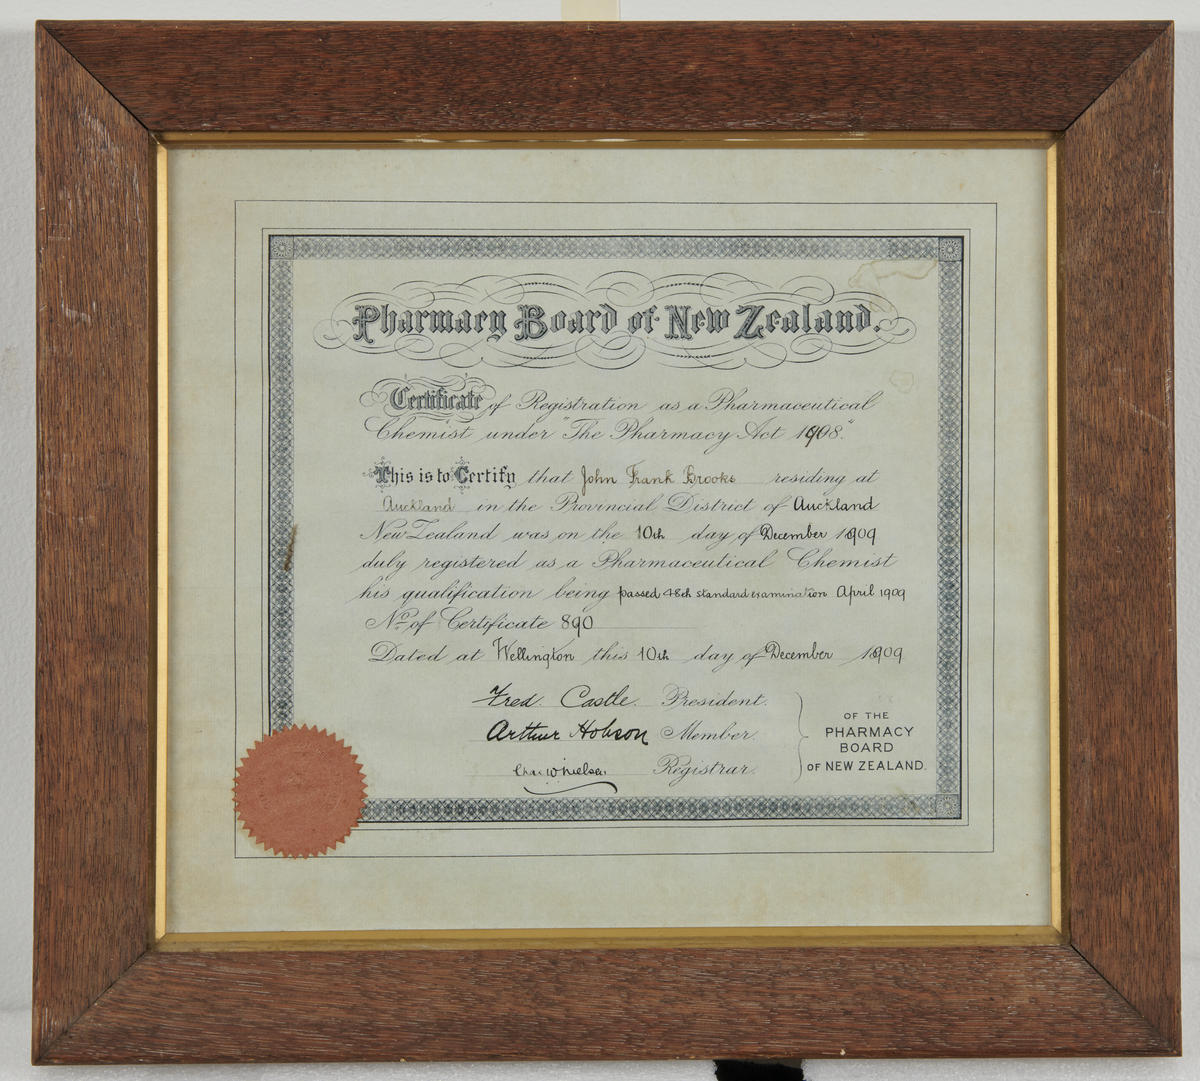 Pharmacy Board of New Zealand.
Certificate of Registration as a Pharmaceutical
Chemist under "The Pharmacy Act 1908."
This is to Certify that John Frank Brooks residing at
Auckland in the Provincial District of Auckland
New Zealand was on the 10th day of December 1909
duly registered as a Pharmaceutical Chemist
his qualification being passed 48th standard examination April 1909
No. of Certificate 890
Dated at Wellington this 10th day of December 1909
Fred. Castle. President.
Arthur Hobson Member.
Chas W Nielsen Registrar.
OF THE
PHARMACY
BOARD
OF NEW ZEALAND.